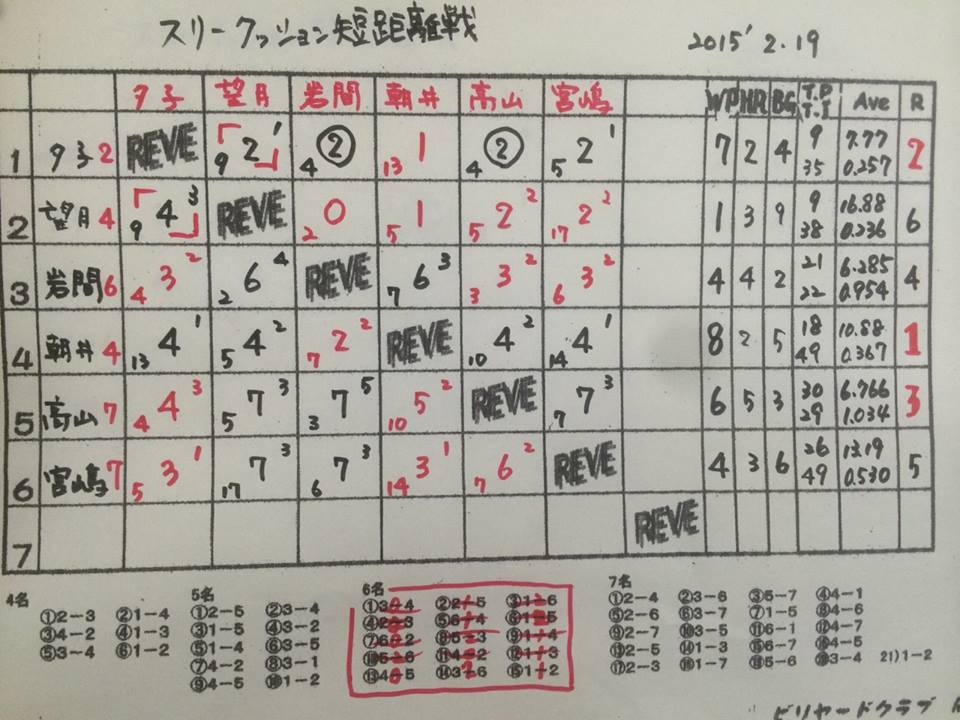 スリークッション短距離戦
2015' 2.19
夕子 望月 岩間 朝井 高山 宮嶋 WP HR BG T.P T.I Ave R
1 夕子 2 REVE 9 2 1 4 ② 13 1 4 ② 5 2 1 7 2 4 9 35 7.77 0.257 2
2 望月 4 9 4 3 REVE 2 0 5 1 5 2 2 17 2 2 1 3 9 9 38 16.88 0.236 6
3 岩間 6 4 3 2 2 6 4 REVE 7 6 3 3 3 2 6 3 2 4 4 2 21 22 6.285 0.954 4
4 朝井 4 13 4 1 5 4 2 7 2 2 REVE 10 4 2 14 4 1 8 2 5 18 49 10.88 0.367 1
5 高山 7 4 4 3 5 7 3 3 7 5 10 5 2 REVE 7 7 3 6 5 3 30 29 6.766 1.034 3
6 宮嶋 7 5 3 1 17 7 3 6 7 3 14 3 1 7 6 2 REVE 4 3 6 26 49 13.19 0.530 5
7 REVE
4名
①2-3 ②1-4
③4-2 ④1-3
⑤3-4 ⑥1-2
5名
①2-5 ②3-4
③1-5 ④3-2
⑤1-4 ⑥3-5
⑦4-2 ⑧3-1
⑨4-5 ⑩1-2
6名
①3-4 ②2-5 ③1-6
④2-3 ⑤6-4 ⑥1-5
⑦6-2 ⑧5-3 ⑨1-4
⑩5-6 ⑪4-2 ⑫1-3
⑬4-5 ⑭3-6 ⑮1-2
7名
①2-4 ②3-6 ③5-7 ④4-1
⑤2-6 ⑥3-7 ⑦1-5 ⑧4-6
⑨2-7 ⑩3-5 ⑪6-1 ⑫4-7
⑬2-5 ⑭1-3 ⑮6-7 ⑯4-5
⑰2-3 ⑱1-7 ⑲5-6 ⑳3-4 21)1-2
ビリヤードクラブ